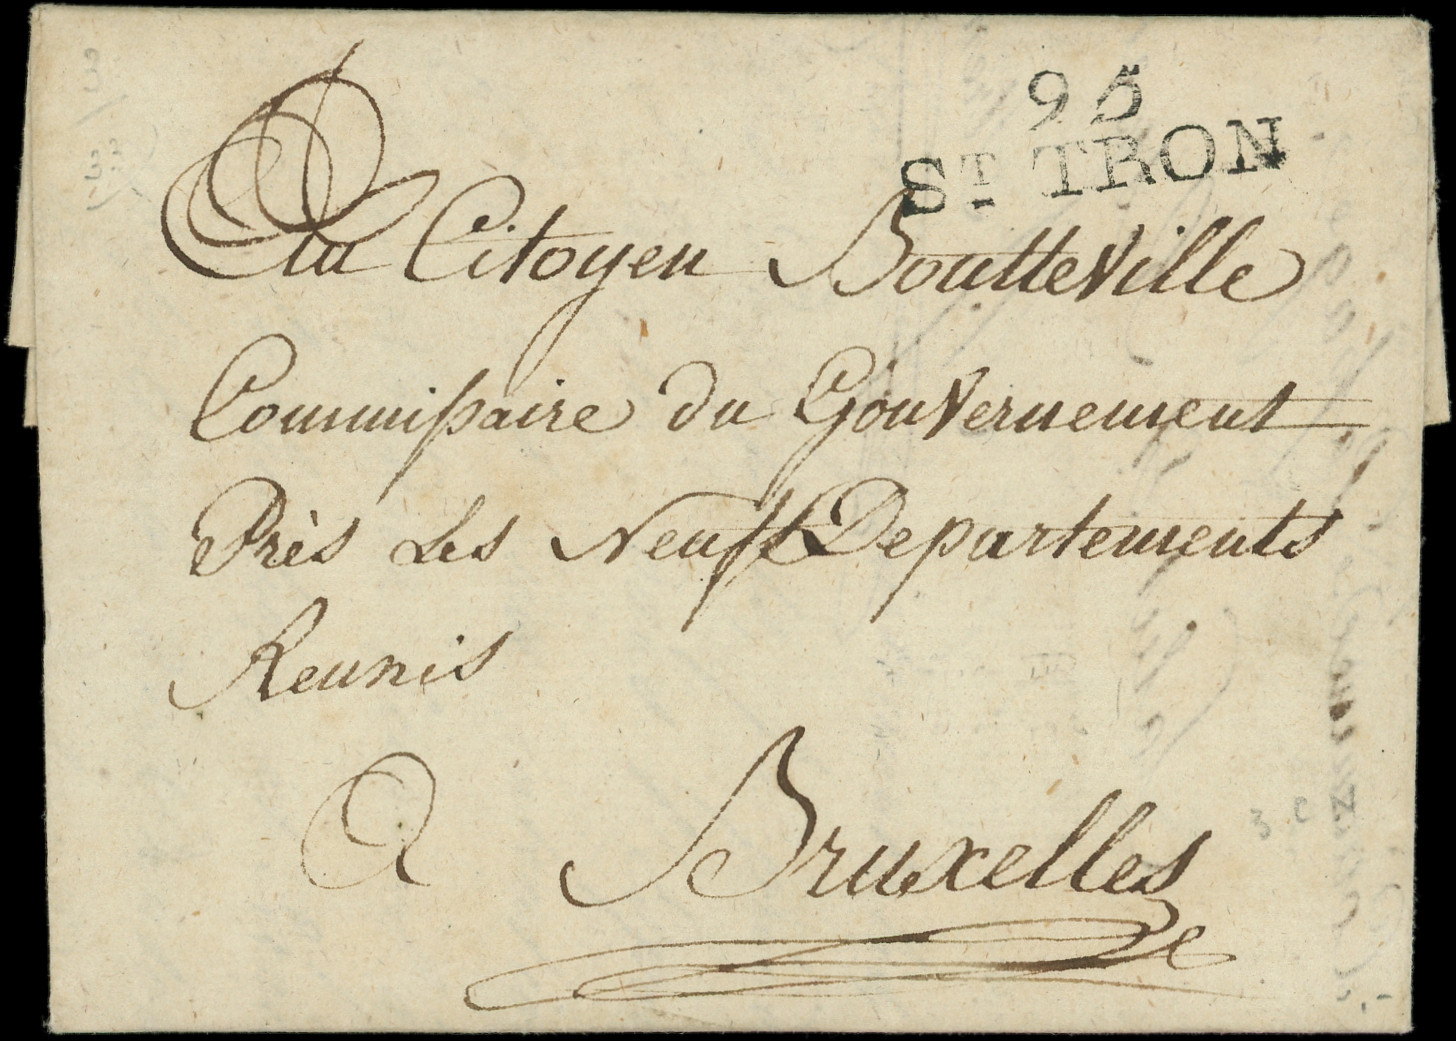 95
ST TRON
Au Citoyen Boutteville
Commissaire du Gouvernement
Près Les Neuf Departements
Reunis
A Bruxelles